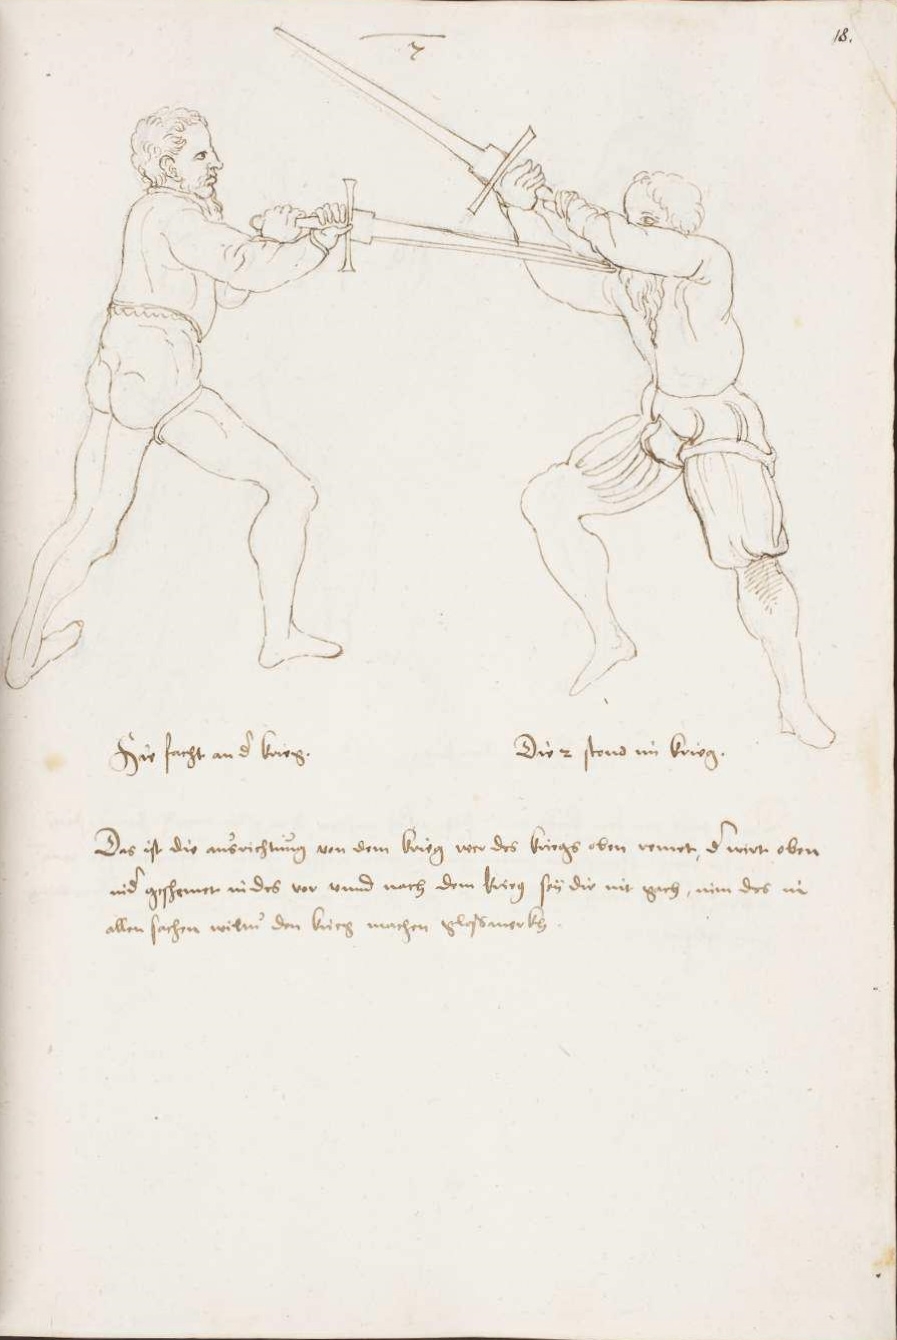 7
18.
Hie facht an d krieg.
Die 2 stend im krieg.
Das ist die ausrichtung von dem krieg wer des kriegs oben remet, d wirt oben
nid geschemet indes vor vnnd nach dem krieg sey dir nit gach, nim des in
allen sachen wiltu den krieg machen